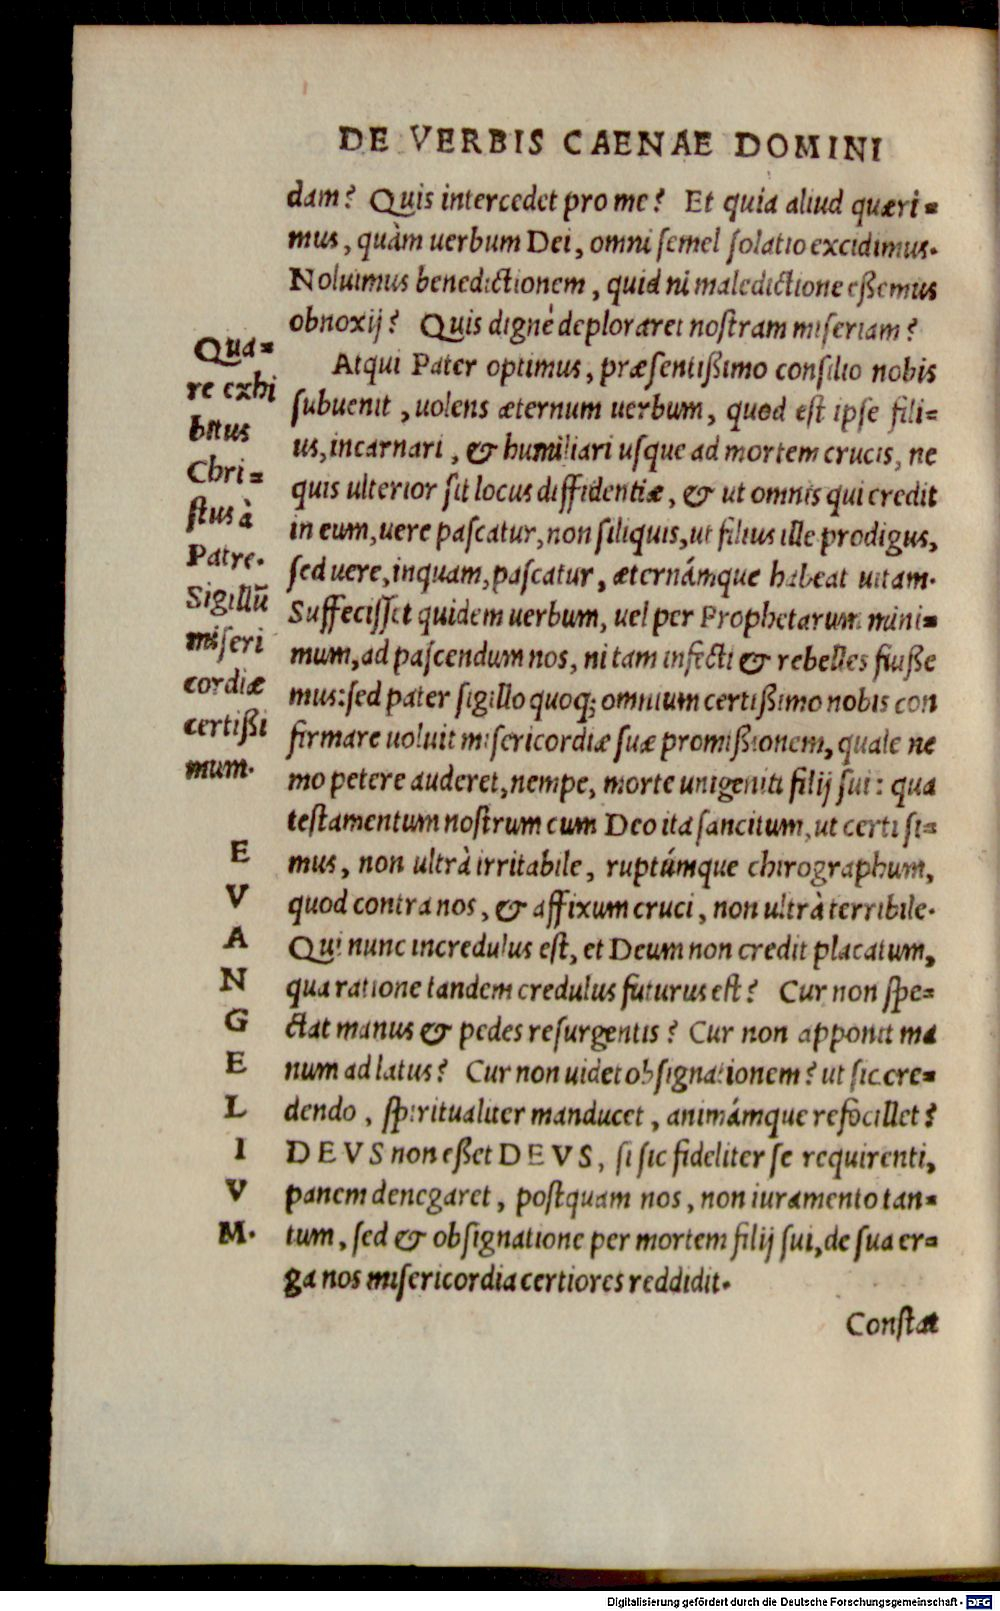 DE VERBIS CAENAE DOMINI
dam? Quis intercedet pro me? Et quia aliud quæri=
mus, quàm uerbum Dei, omni semel solatio excidimus.
Noluimus benedictionem, quid ni maledictione eßemus
obnoxij? Quis dignè deploraret nostram miseriam?
Atqui Pater optimus, præsentißimo consilio nobis
subuenit, uolens æternum uerbum, quod est ipse fili=
us, incarnari, & humiliari usque ad mortem crucis, ne
quis ulterior sit locus diffidentiæ, & ut omnis qui credit
in eum, uere pascatur, non siliquis, ut filius ille prodigus,
sed uere, inquam, pascatur, æternámque habeat uitam.
Suffecisset quidem uerbum, uel per Prophetarum mini=
mum, ad pascendum nos, ni tam infecti & rebelles fuiße
mus: sed pater sigillo quoq; omnium certißimo nobis con
firmare uoluit misericordiæ suæ promißionem, quale ne
mo petere auderet, nempe, morte unigeniti filij sui: qua
testamentum nostrum cum Deo ita sancitum, ut certi si=
mus, non ultrà irritabile, ruptúmque chirographum,
quod contra nos, & affixum cruci, non ultrà terribile.
Qui nunc incredulus est, et Deum non credit placatum,
qua ratione tandem credulus futurus est? Cur non spe=
ctat manus & pedes resurgentis? Cur non apponit ma
num ad latus? Cur non uidet obsignationem? ut sic cre=
dendo, spiritualiter manducet, animámque refocillet?
DEVS non eßet DEVS, si sic fideliter se requirenti,
panem denegaret, postquam nos, non iuramento tan=
tum, sed & obsignatione per mortem filij sui, de sua er=
ga nos misericordia certiores reddidit.
Constat
Qua=
re exhi
bitus
Chri=
stus à
Patre.
Sigillũ
miseri
cordiæ
certißi
mum.
E
V
A
N
G
E
L
I
V
M.
Digitalisierung gefördert durch die Deutsche Forschungsgemeinschaft - DFG